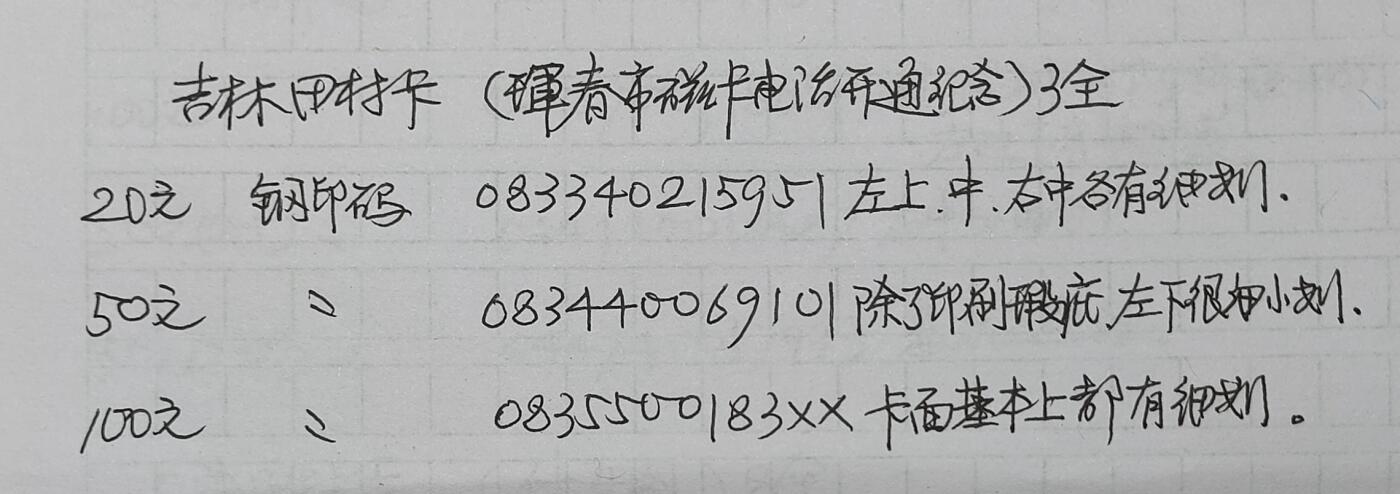 吉林田村卡（珲春市磁卡电话开通纪念）3全
20元 钢印码 083340215951 左上.中.右中各有细划.
50元 〃 083440069101 除了印刷瑕疵,左下很细小划.
100元 〃 0835500183XX 卡面基本上都有细划。